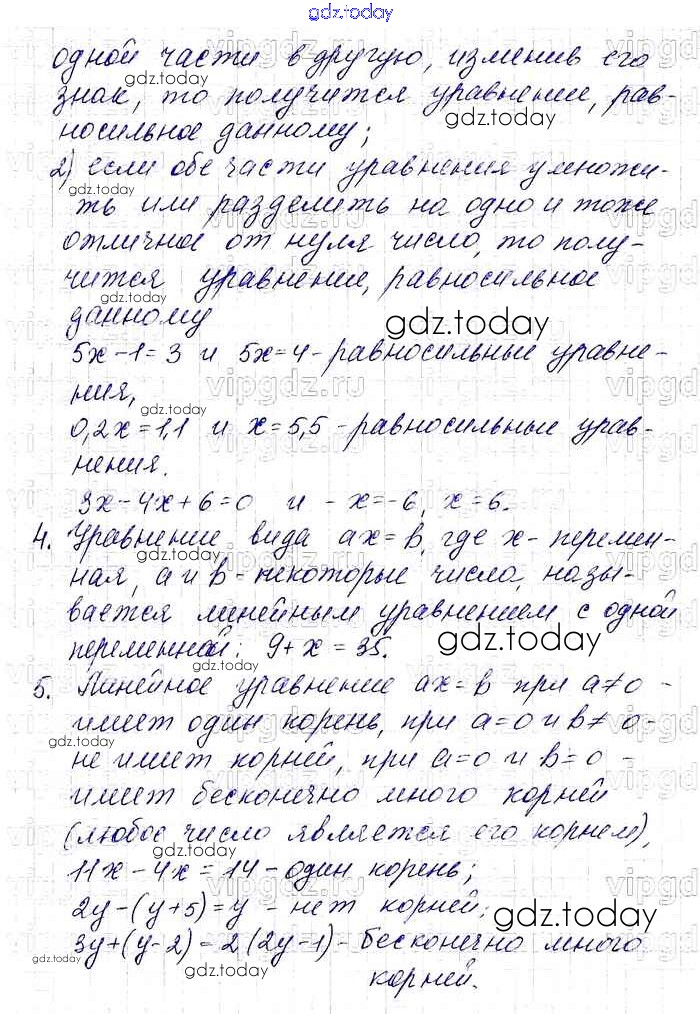 gdz.today
одной части в другую, изменив его
знак, то получится уравнение, рав-
носильное данному;
2) если обе части уравнения умножи-
ть или разделить на одно и тоже
отличное от нуля число, то полу-
чится уравнение, равносильное
данному
5x-1=3 и 5x=4 - равносильные уравне-
ния,
0,2x=1,1 и x=5,5 - равносильные урав-
нения.
3x-4x+6=0 и -x=-6, x=6.
4. Уравнение вида ax=b, где x- перемен-
ная, a и b - некоторые число, назы-
вается линейным уравнением с одной
переменной: 9+x=35.
5. Линейное уравнение ax=b при a≠0 -
имеет один корень, при a=0 и b≠0-
не имеет корней, при a=0 и b=0 -
имеет бесконечно много корней
(любое число является его корнем),
11x-4x=14 - один корень;
2y-(y+5)=y - нет корней;
3y+(y-2)=2(2y-1) - бесконечно много
корней.